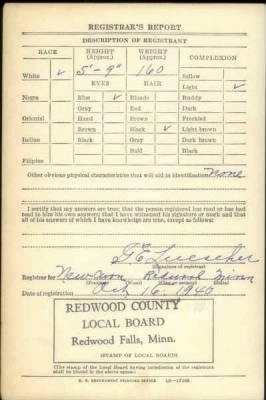 REGISTRAR'S REPORT
DESCRIPTION OF REGISTRANT
RACE HEIGHT (Approx.) WEIGHT (Approx.) COMPLEXION
White ✓ 5'-9" 160 Sallow
EYES HAIR Light ✓
Negro Blue ✓ Blonde Ruddy
Gray Red Dark
Oriental Hazel Brown Freckled
Brown Black ✓ Light brown
Indian Black Gray Dark brown
Bald Black
Filipino
Other obvious physical characteristics that will aid in identification None
I certify that my answers are true; that the person registered has read or has had
read to him his own answers; that I have witnessed his signature or mark and that
all of his answers of which I have knowledge are true, except as follows:
G E Luescher
(Signature of registrar)
Registrar for Redwood Minn
Date of registration Oct 16, 1940
REDWOOD COUNTY
LOCAL BOARD
Redwood Falls, Minn.
(STAMP OF LOCAL BOARD)
(The stamp of the Local Board having jurisdiction of the registrant
shall be placed in the above space)
U. S. GOVERNMENT PRINTING OFFICE